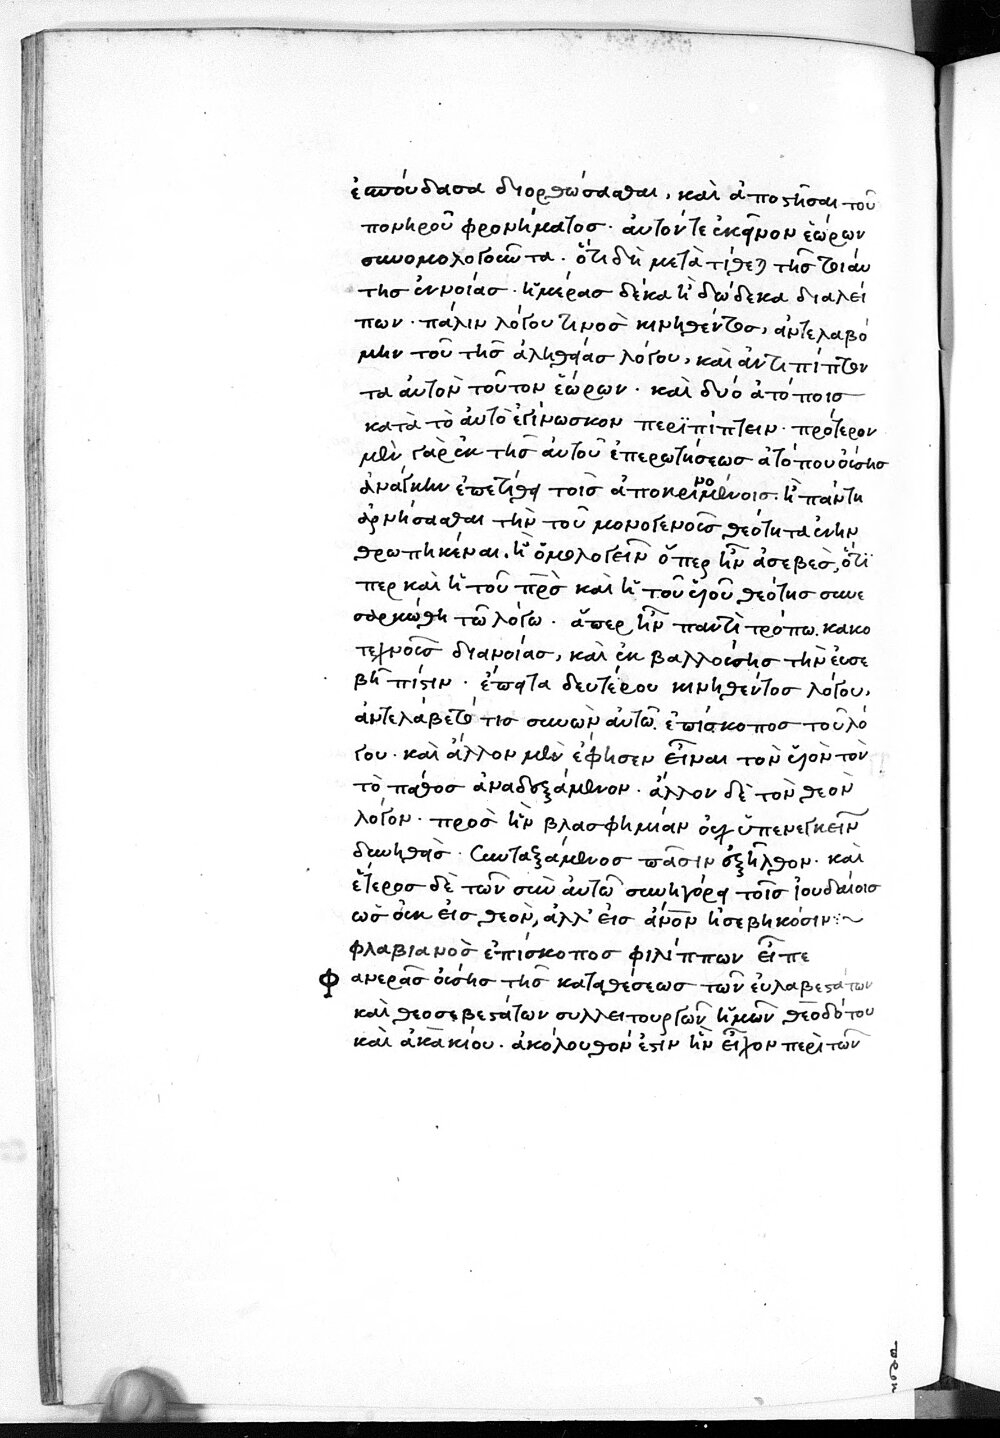 ἐσπούδασα διορθώσασθαι, καὶ ἀποστῆσαι τοῦ
πονηροῦ φρονήματος· αὐτόν τε ἐκεῖνον ἑώρων
συνομολογοῦντα· ὅτι δὴ μετατίθεται τῆς τοιαύ
της ἐννοίας· ἡμέρας δέκα ἢ δώδεκα διαλεί
πων· πάλιν λόγου τινὸς κινηθέντος, ἀντελαβό
μην τοῦ τῆς ἀληθείας λόγου, καὶ ἀντιπίπτον
τα αὐτὸν τοῦτον ἑώρων· καὶ δυό ἀτόποις
κατὰ τὸ αὐτὸ ἐγίνωσκον περιπίπτειν· πρότερον
μὲν γὰρ ἐκ τῆς αὐτοῦ ἐπερωτήσεως ἀτόπου οὔσης
ἀνάγκην ἐπετίθει τοῖς ἀποκρινομένοις· ἢ πάντη
ἀρνήσασθαι τὴν τοῦ μονογενοῦς θεότητα ἐνην
θρωπηκέναι, ἢ ὁμολογεῖν ὅπερ ἦν ἀσεβὲς, ὅτι
περ καὶ ἡ τοῦ πρς καὶ ἡ τοῦ υἱοῦ θεότης συνε
σαρκώθη τῷ λόγῳ· ἅπερ ἦν παντὶ τρόπῳ κακο
τέχνους διανοίας, καὶ ἐκβαλλούσης τὴν εὐσε
βῆ πίστιν· ἔπειτα δευτέρου κινηθέντος λόγου,
ἀντελάβετό τις συνὼν αὐτῷ ἐπίσκοπος τοῦ λό
γου· καὶ ἄλλον μὲν ἔφησεν εἶναι τὸν υἱὸν τὸν
τὸ πάθος ἀναδεξάμενον· ἄλλον δὲ τὸν θεὸν
λόγον· πρὸς ἣν βλασφημίαν οὐχ ὑπενεγκεῖν
δυνηθεὶς· συνταξάμενος πᾶσιν ἐξῆλθον· καὶ
ἕτερος δὲ τῶν σὺν αὐτῷ συνηγόρει τοῖς ἰουδαίοις
ὡς οὐκ εἰς θεὸν, ἀλλ' εἰς ἄνον ἠσεβηκόσιν:~
φλαβιανὸς ἐπίσκοπος φιλίππων εἶπε
Φανερᾶς οὔσης τῆς καταθέσεως τῶν εὐλαβεστάτων
καὶ θεοσεβεστάτων συλλειτουργῶν ἡμῶν θεοδότου
καὶ ἀκακίου· ἀκόλουθόν ἐστιν ἣν εἶχον περὶ τῶν